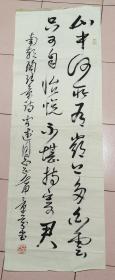 山中何所有嶺上多白雲
只可自怡悦不堪持寄君
南朝陶弘景詩